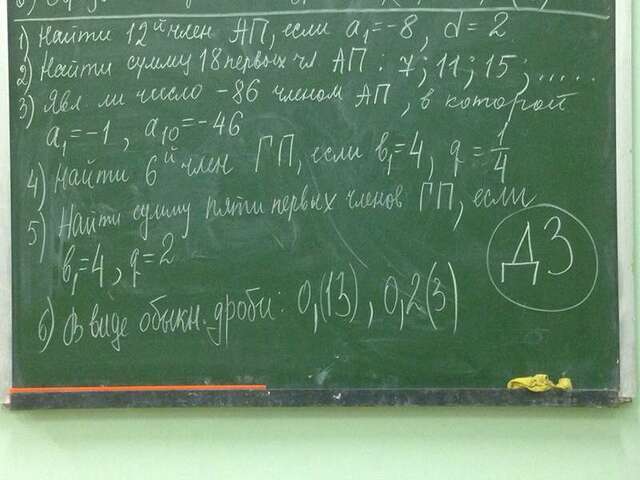 1) Найти 12й член АП, если a₁=-8, d=2
2) Найти сумму 18 первых чл АП: 7; 11; 15; .....
3) Явл. ли число -86 членом АП, в которой
a₁=-1, a₁₀=-46
4) Найти 6й член ГП, если b₁=4, q=1/4
5) Найти сумму пяти первых членов ГП, если
b₁=4, q=2
6) В виде обыкн. дроби: 0,(13), 0,2(3)
ДЗ